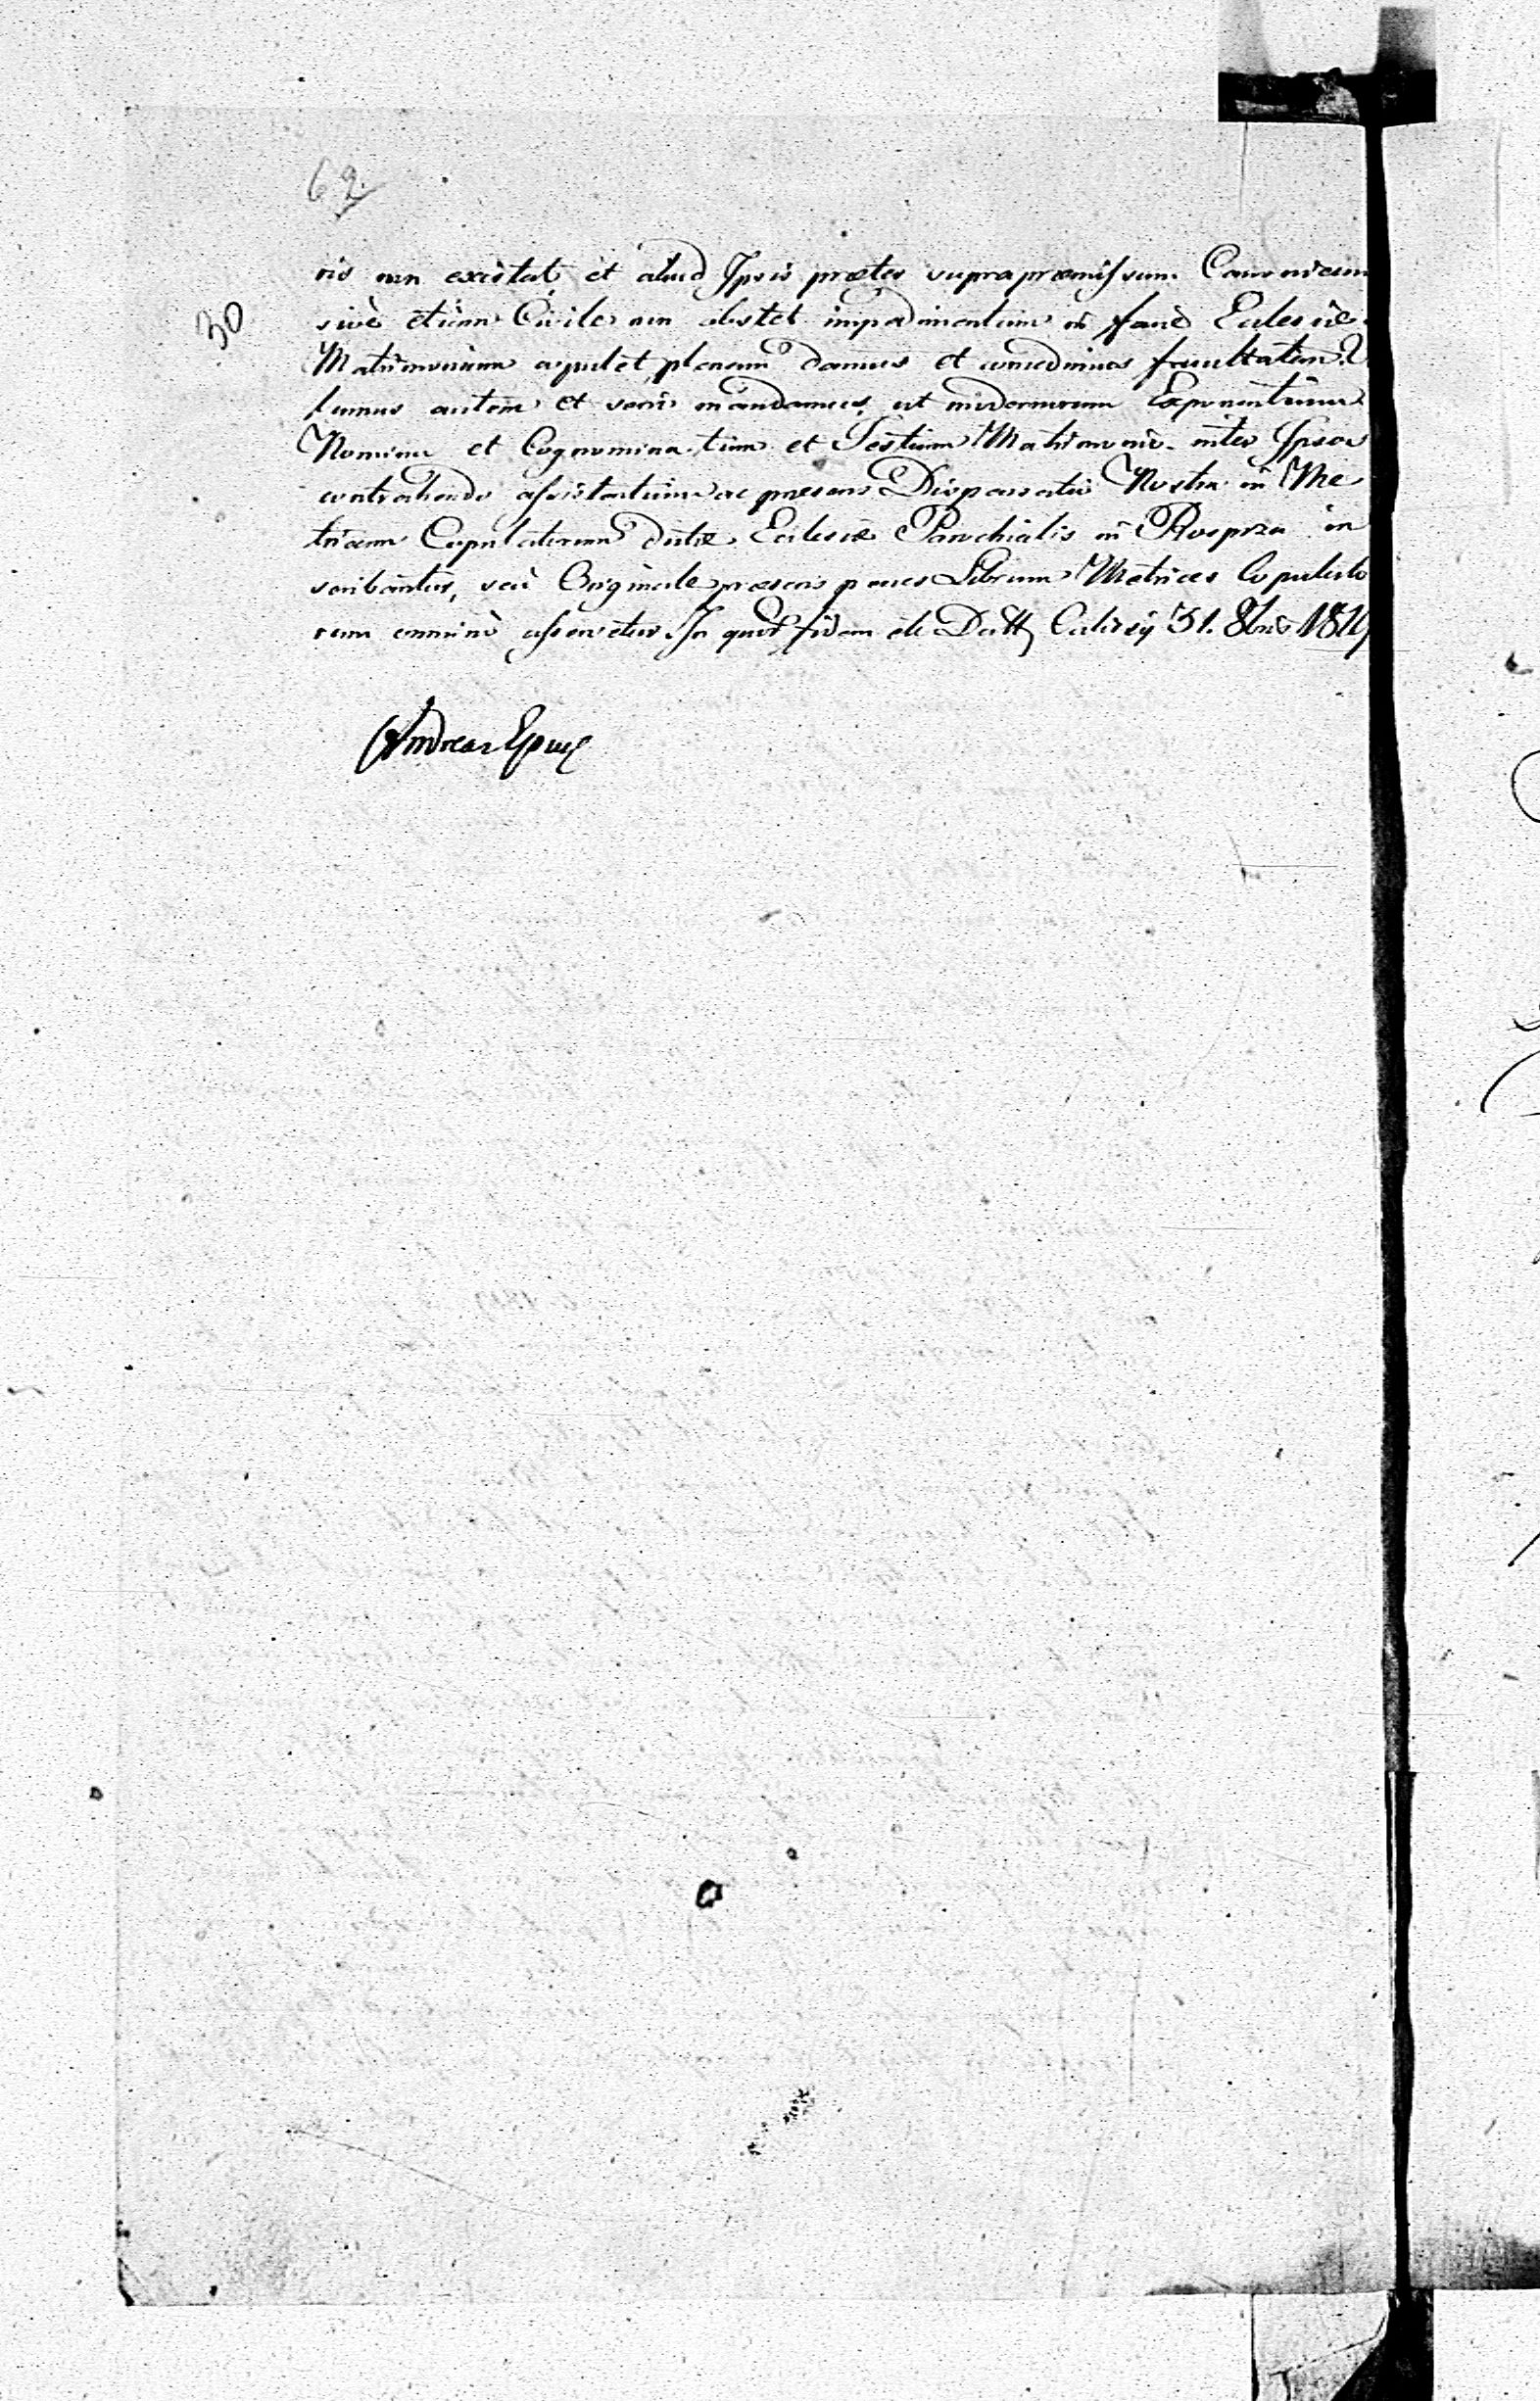 62
ris non existat, et aliud Ipsis præter supra præmissum Canonicum
30
sivè etiam Civile non obstet impedimentum in faciè Eclesiæ
Matrimonium copulet, plenam damus et concedimus facultatem.
lumus autem et seriò mandamus, ut modernorum Exponentium
Nomina et Cognomina, tum et Testium Matrimonio inter Ipsos
contrahendo assistentium ac præsens Dispensatio Nostra in Me
tricam Copulatorum dictæ Eclesiæ Parochialis in Rosprza in
scribantur, seù Originale præsens penes Librum Metrices Copulato
rum omninò asservetur. In quor fidem etc Datt Calisij 31. 8bris
Andreas Eppus